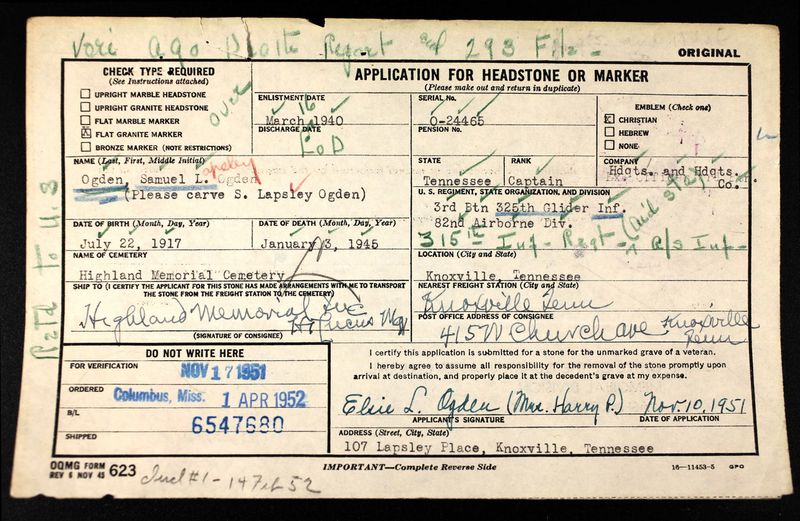 Report and 293 File -
ORIGINAL
CHECK TYPE REQUIRED
(See Instructions attached)
UPRIGHT MARBLE HEADSTONE
UPRIGHT GRANITE HEADSTONE
FLAT MARBLE MARKER
X FLAT GRANITE MARKER
BRONZE MARKER (NOTE RESTRICTIONS)
over
APPLICATION FOR HEADSTONE OR MARKER
(Please make out and return in duplicate)
ENLISTMENT DATE
16
March 1940
DISCHARGE DATE
SERIAL No.
O-24465
PENSION No.
EMBLEM (Check one)
X CHRISTIAN
HEBREW
NONE
NAME (Last, First, Middle Initial)
Ogden, Samuel L. Ogden
apsley
(Please carve S. Lapsley Ogden)
STATE
Tennessee
RANK
Captain
COMPANY
Hdqts. and Hdqts.
Co.
U. S. REGIMENT, STATE ORGANIZATION, AND DIVISION
3rd Btn 325th Glider Inf.
82nd Airborne Div.
315th Inf - Regt -
DATE OF BIRTH (Month, Day, Year)
July 22, 1917
DATE OF DEATH (Month, Day, Year)
January 3, 1945
NAME OF CEMETERY
Highland Memorial Cemetery
LOCATION (City and State)
Knoxville, Tennessee
SHIP TO (I CERTIFY THE APPLICANT FOR THIS STONE HAS MADE ARRANGEMENTS WITH ME TO TRANSPORT
THE STONE FROM THE FREIGHT STATION TO THE CEMETERY)
Highland Memorial
(SIGNATURE OF CONSIGNEE)
NEAREST FREIGHT STATION (City and State)
Knoxville Tenn
POST OFFICE ADDRESS OF CONSIGNEE
415 W Church ave Knoxville
Tenn
DO NOT WRITE HERE
FOR VERIFICATION
NOV 17 1951
ORDERED
Columbus, Miss. 1 APR 1952
B/L
6547680
SHIPPED
I certify this application is submitted for a stone for the unmarked grave of a veteran.
I hereby agree to assume all responsibility for the removal of the stone promptly upon
arrival at destination, and properly place it at the decedent's grave at my expense.
Elsie L. Ogden (Mrs. Harry P.) Nov. 10, 1951
APPLICANT'S SIGNATURE
DATE OF APPLICATION
ADDRESS (Street, City, State)
107 Lapsley Place, Knoxville, Tennessee
OQMG FORM 623
REV 6 NOV 45
Incl #1 - 14 Feb 52
IMPORTANT—Complete Reverse Side
16—11453-5 GPO
Retd to U.S